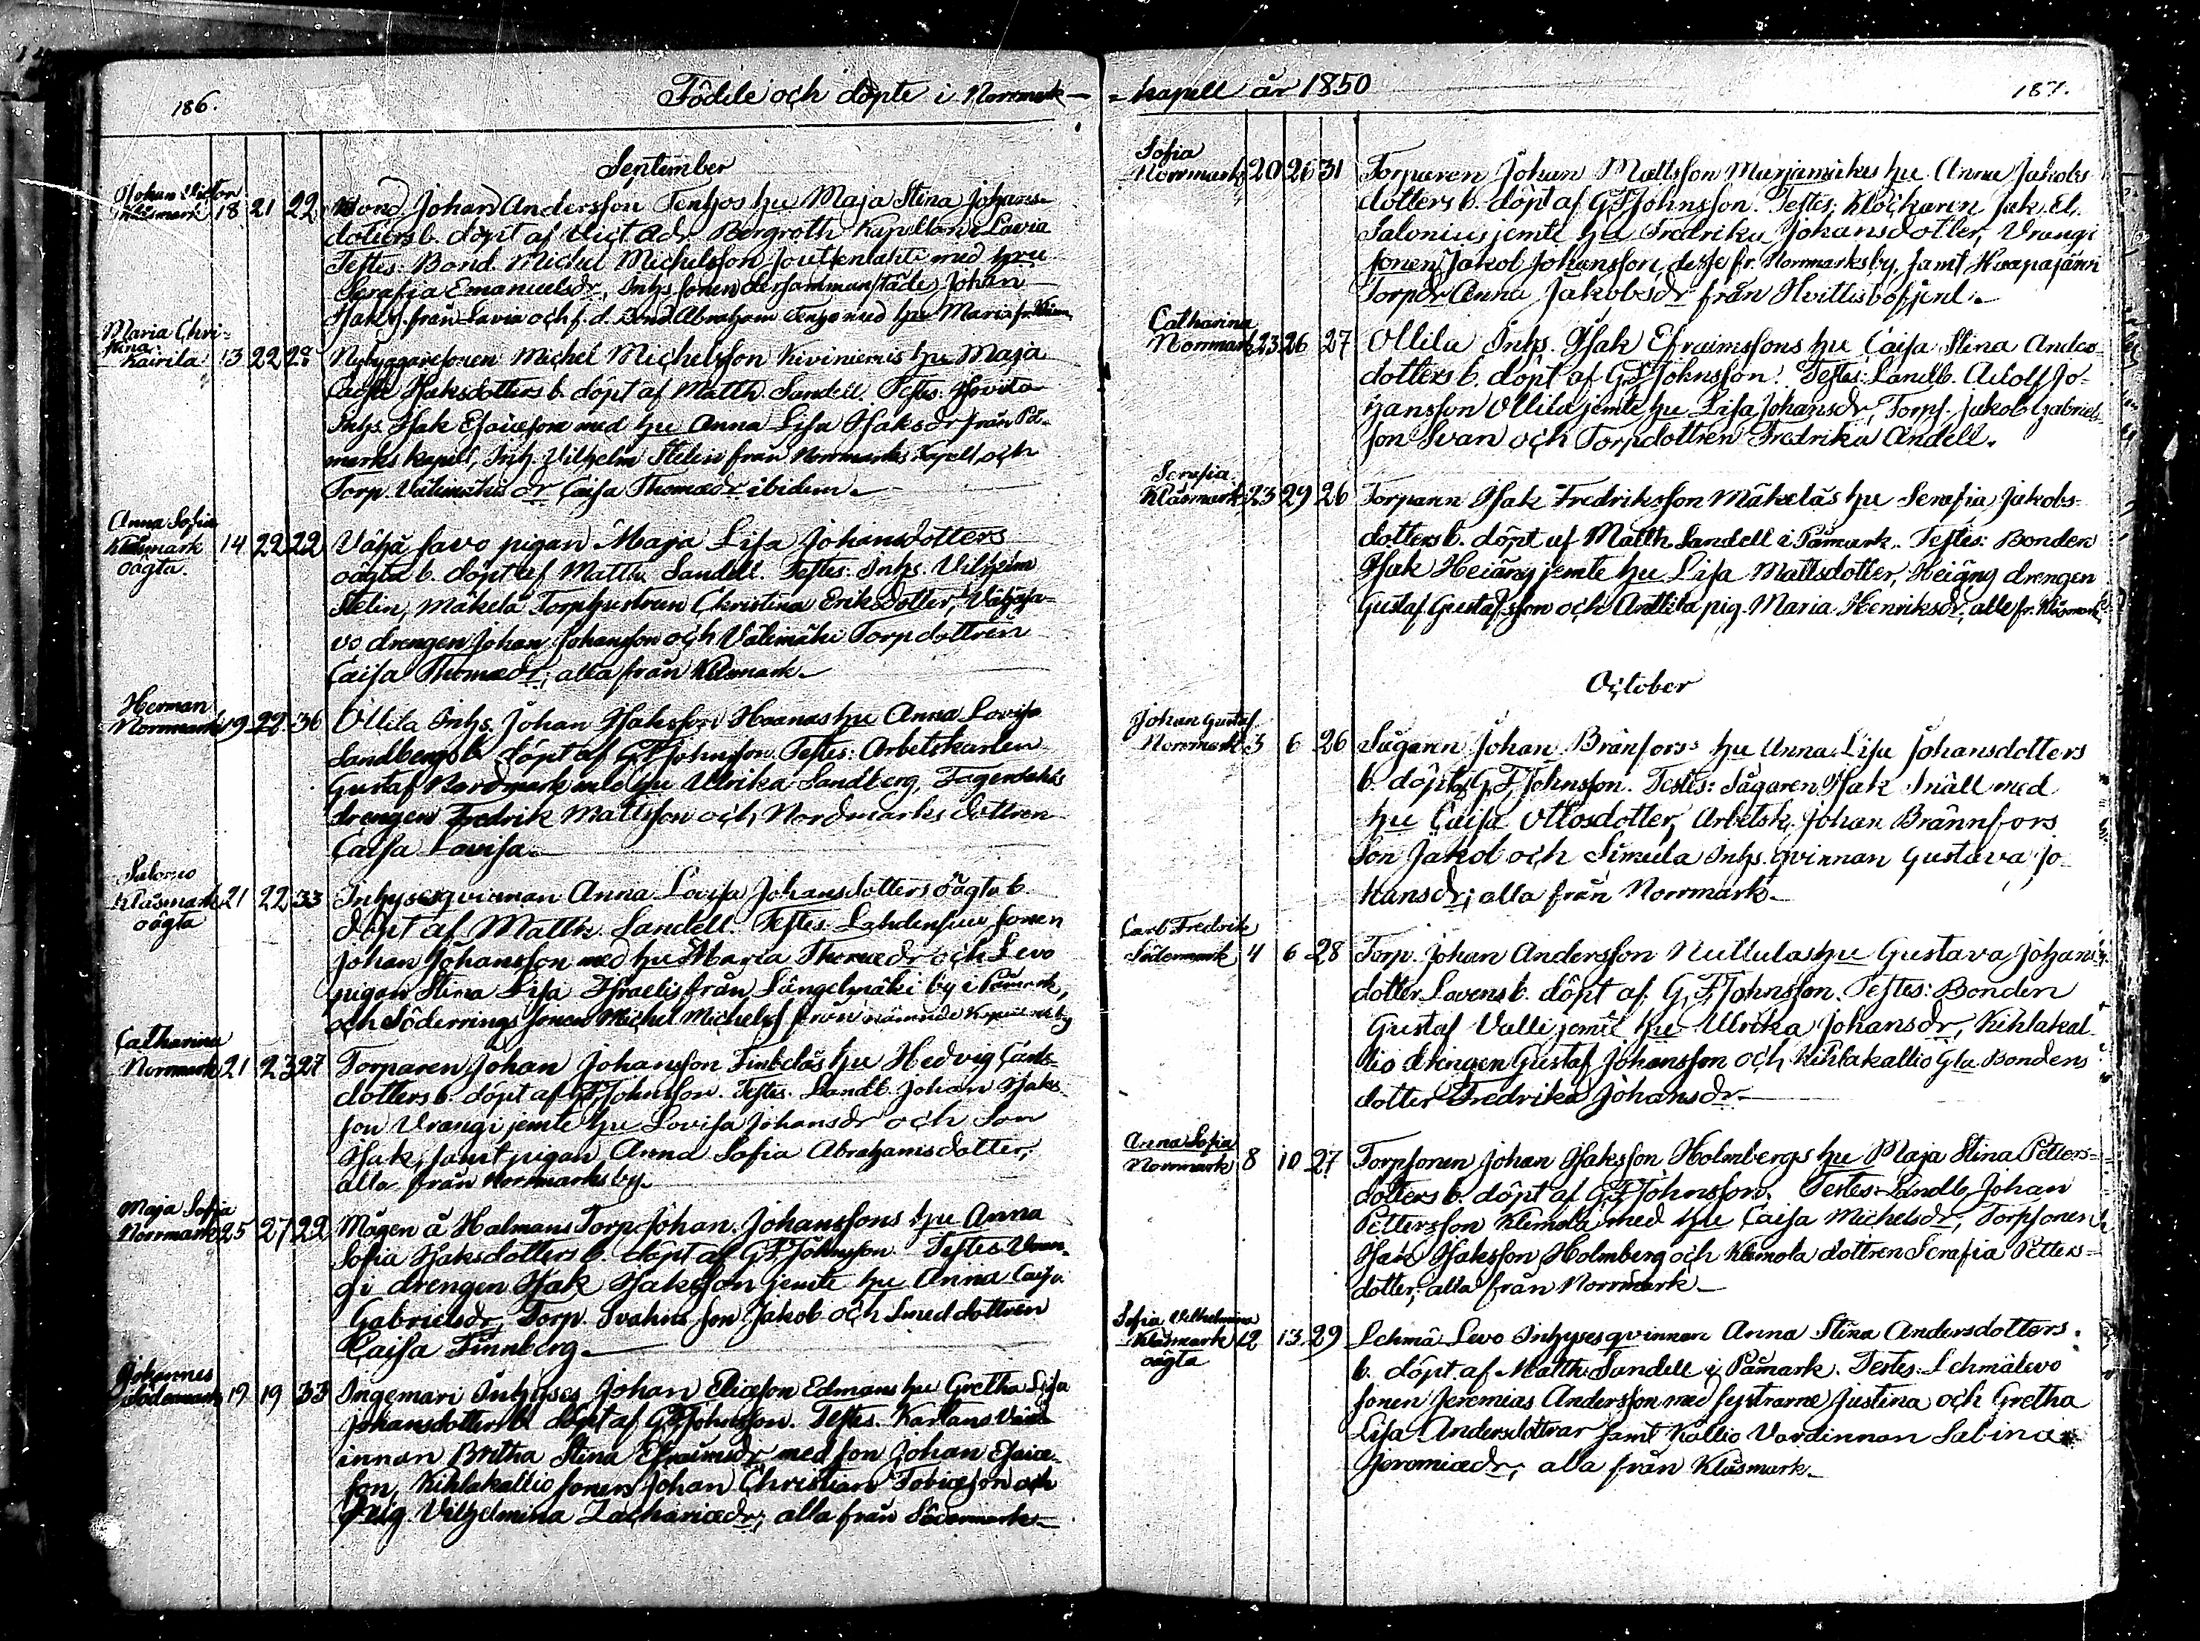 186.
Födde och döpte i Norrmark-
September
Johan Victor
Klåsmark 18 21 22 Bond. Johan Andersson Tenhos hu Maja Stina Johans-
dotters b. döpt af Vict Adr Bergroth Kapellan i Lavia
Testes: Bond. Michel Michelsson Jouttenlahti med hru
Serafia Emanuelsdr, Inhs sonen dersammanstädes Johan
Isaks. från Lavia och f. d. Bond Abraham Tenho med hu Maria fr.
Maria Chri-
stina
Kairila 13 22 28 Nybyggaresonen Michel Michelsson Kiviniemis hu Maja
Caisa Isaksdotters b. döpt af Matth. Sandell. Testes:
Inhs. Isak Esaiæson med hu Anna Lisa Isaksdr från På-
marks kapell, Inh. Vilhelm Stelin från Norrmarks Kapell och
Torp. Välimäki dr Caisa Thomædr ibidem.
Anna Sofia
Klåsmark 14 22 22 Vähä Savo pigan Maja Lisa Johansdotters
oägta.
oägta b. döpt af Matth. Sandell. Testes: Inhs. Vilhelm
Stelin, Mäkelä Torphustrun Christina Eriksdotter, Vähäsa-
vo drengen Johan Johansson och Välimäki Torpdottren
Caisa Thomædr; alla från Klåsmark.
Herman
Norrmark 19 22 36 Ollila Inhs. Johan Isaksson Haanas hu Anna Lovisa
Sandbergs b. döpt af G. F. Johnsson. Testes: Arbetskarlen
Gustaf Nordmark med hu Ulrika Sandberg, Fagerdahls
drengen Fredrik Mattsson och Nordmarks dottren
Caisa Lovisa.
Salomo
Klåsmark 21 22 33 Inhysesqvinnan Anna Lovisa Johansdotters oägta b.
oägta
döpt af Matth. Sandell. Testes: Lahdensuu sonen
Johan Johansson med hu Maria Thomædr och Levo
pigan Stina Lisa Israelis från Längelmäki by i Påmark,
och Söderrings sonen Michel Michelss från
Catharina
Norrmark 21 23 27 Torparen Johan Johansson Finkeläs hu Hedvig Carls-
dotters b. döpt af G. F. Johnsson. Testes: Landb. Johan Isaks-
son Vrangi jemte hu Lovisa Johansdr och Son
Isak, samt pigan Anna Sofia Abrahamsdotter,
alla från Norrmarks by.
Maja Sofia
Norrmark 25 27 22 Mågen å Halmans Torp Johan Johanssons hu Anna
Sofia Isaksdotters b. döpt af G. F. Johnsson. Testes: Vran-
gi drengen Isak Isaksson jemte hu Anna Caisa
Gabrielsdr, Torp. Svahns son Jakob och Smeddottren
Caisa Finnberg.
Johannes
Södermark 19 19 33 Ingemari Inhyses Johan Eliæson Edmans hu Gretha Lisa
Johansdotters b. döpt af G. F. Johnsson. Testes. Karlans Värd-
innan Britha Stina Efraimsdr med son Johan Esaiæ-
son, Kihlakallio sonen Johan Christian Tobiæson och
Pig. Vilhelmina Zachariædr; alla från Södermark.
-kapell år 1850
187.
Sofia
Norrmark 20 26 31 Torparen Johan Mattsson Murjamikes hu Anna Jakobs
dotters b. döpt af G. F. Johnsson. Testes: Klockaren Jak. El.
Salonius jemte hu Fredrika Johansdotter, Vrangi
sonen Jakob Johansson, desse fr. Norrmarks by, samt Haapajärvi
Torpdr Anna Jakobsdr från Hvittisbofjerd.
Catharina
Norrmark 23 26 27 Ollila Inhs. Isak Efraimssons hu Caisa Stina Anders-
dotters b. döpt af G. F. Johnsson. Testes: Landb. Adolf Jo-
hansson Ollila jemte hu Lisa Johansdr, Torps. Jakob Gabriels-
son Svan och Torpdottren Fredrika Andell.
Serafia
Klåsmark 23 29 26 Torparen Isak Fredriksson Mäkeläs hu Serafia Jakobs-
dotters b. döpt af Matth. Sandell i Påmark. Testes: Bonden
Isak Heiäng jemte hu Lisa Mattsdotter, Heiäng drengen
Gustaf Gustafsson och Anttila pig. Maria Henriksdr, alle fr. Klåsmark.
October
Johan Gustaf
Norrmark 3 6 26 Sågaren Johan Bränfors's hu Anna Lisa Johansdotters
b. döpt af G. F. Johnsson. Testes: Sågaren Isak Snäll med
hu Caisa Ottosdotter, Arbetsk. Johan Brännfors
Son Jakob och Simula Inhs. qvinnan Gustava Jo-
hansdr; alla från Norrmark.
Carl Fredrik
Södermark 4 6 28 Torp. Johan Andersson Nullulas hu Gustava Johans-
dotter Lovens b. döpt af G. F. Johnsson. Testes: Bonden
Gustaf Valli jemte hu Ulrika Johansdr, Kihlakal-
lio drengen Gustaf Johansson och Kihlakallio Gla Bondens
dotter Fredrika Johansdr.
Anna Sofia
Norrmark 8 10 27 Torpsonen Johan Isaksson Holmbergs hu Maja Stina Petters-
dotters b. döpt af G. F. Johnsson. Testes: Landb. Johan
Pettersson Klemola med hu Caisa Michelsdr, Torpsonen
Isak Isaksson Holmberg och Klemola dottren Serafia Petters-
dotter; alla från Norrmark.
Sofia Vilhelmina
Klåsmark 12 13 29 Lehmä Levo Inhysesqvinnan Anna Stina Andersdotters
oägta
b. döpt af Matth. Sandell i Påmark. Testes: Lehmälevo
sonen Jeremias Andersson med systrarne Justina och Gretha
Lisa Andersdottrar samt Kallio Värdinnan Sabina
Jeremiædr, alla från Klåsmark.